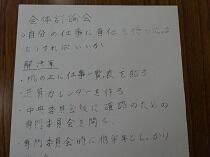 全体討論会
・自分の仕事に責任を持つには
どうすればいいか
解決策
・机の上に仕事一覧表を貼る
・三月カレンダーを作る
・中央委員会後に確認のための
専門委員会を開く、
・専門委員会時に低学年もしっかり